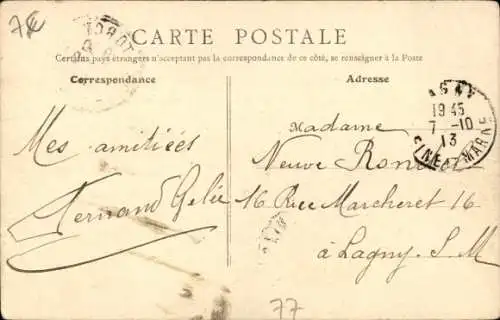 7€
CARTE POSTALE
Certains pays étrangers n'acceptant pas la correspondance de ce côté, se renseigner à la Poste
Correspondance
Adresse
LAGNY
19 45
7 -10
13
SEINE-ET-MARNE
Mes amitiées
Fernand Gelée
Madame
Veuve
16 Rue Marcheret 16
à Lagny. S. M
77